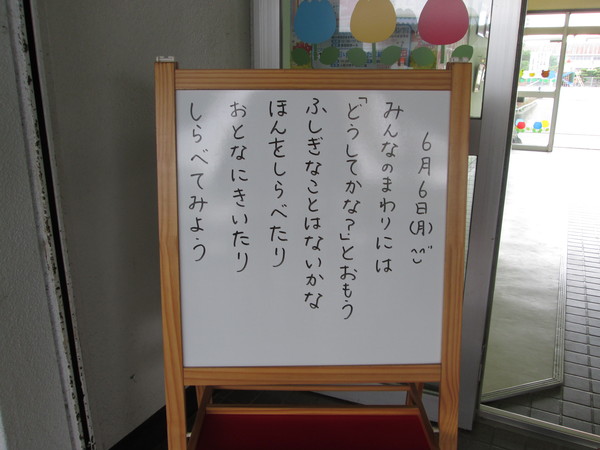 6月6日(月)
みんなのまわりには
「どうしてかな?」とおもう
ふしぎなことはないかな
ほんをしらべたり
おとなにきいたり
しらべてみよう